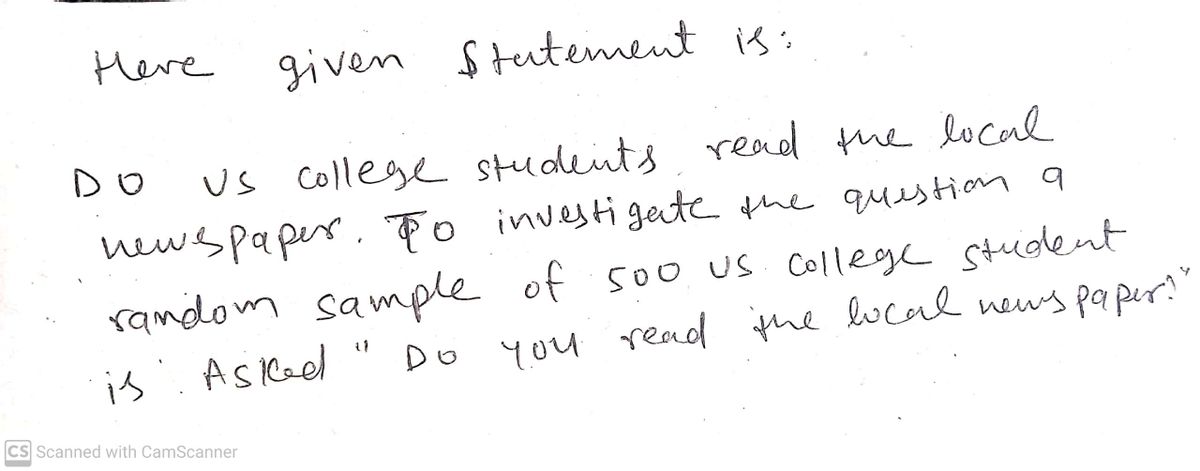 Here given Statement is:
Do US college students read the local
newspaper. To investigate the question a
random sample of 500 US college student
is Asked " Do you read the local newspaper?"
CS Scanned with CamScanner